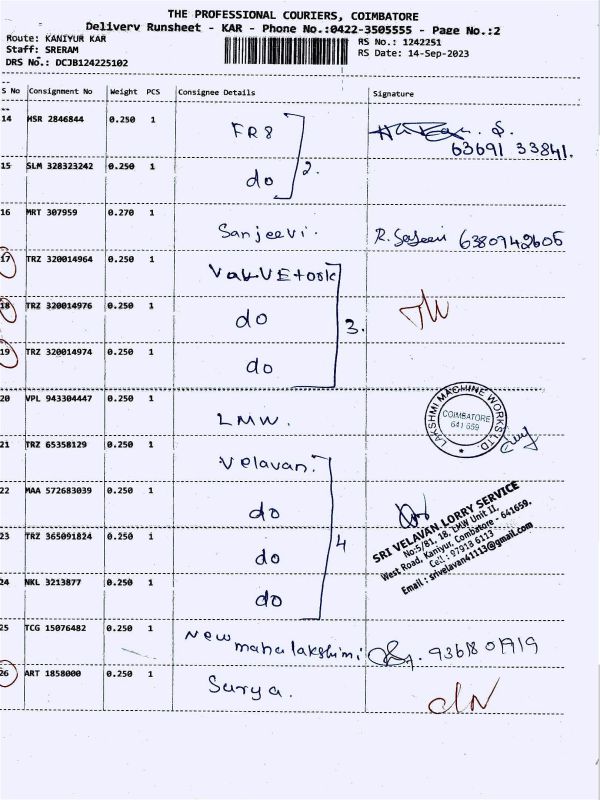 THE PROFESSIONAL COURIERS, COIMBATORE
Delivery Runsheet - KAR - Phone No.:0422-3505555 - Page No.:2
Route: KANIYUR KAR
Staff: SRERAM
DRS No.: DCJB124225102
RS No.: 1242251
RS Date: 14-Sep-2023
S No Consignment No Weight PCS Consignee Details Signature
14 HSR 2846844 0.250 1 FR8
63691 33841.
15 SLM 328323242 0.250 1 do 2.
16 MRT 307959 0.270 1 Sanjeevi. R. 6380942606
17 TRZ 320014964 0.250 1
18 TRZ 320014976 0.250 1 do 3.
19 TRZ 320014974 0.250 1 do
20 VPL 943304447 0.250 1 LMW.
LAKSHMI MACHINE WORKS LTD.
COIMBATORE
641 659
21 TRZ 65358129 0.250 1 Velavan.
22 MAA 572683039 0.250 1 do
23 TRZ 365091824 0.250 1 do 4
24 NKL 3213877 0.250 1 do
SRI VELAVAN LORRY SERVICE
No:5/81, 18, LMW Unit II,
West Road, Kaniyur, Coimbatore - 641659.
Cell : 97918 6113
Email : srivelavan41113@gmail.com
25 TCG 15076482 0.250 1 New mahalakshimi 9361801919
26 ART 1858000 0.250 1 Surya.